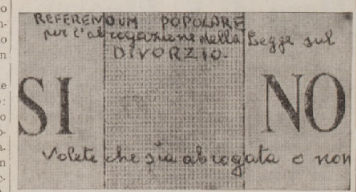 REFERENDUM POPOLARE
per l'abrogazione della Legge sul
DIVORZIO.
SI NO
Volete che sia abrogata o non